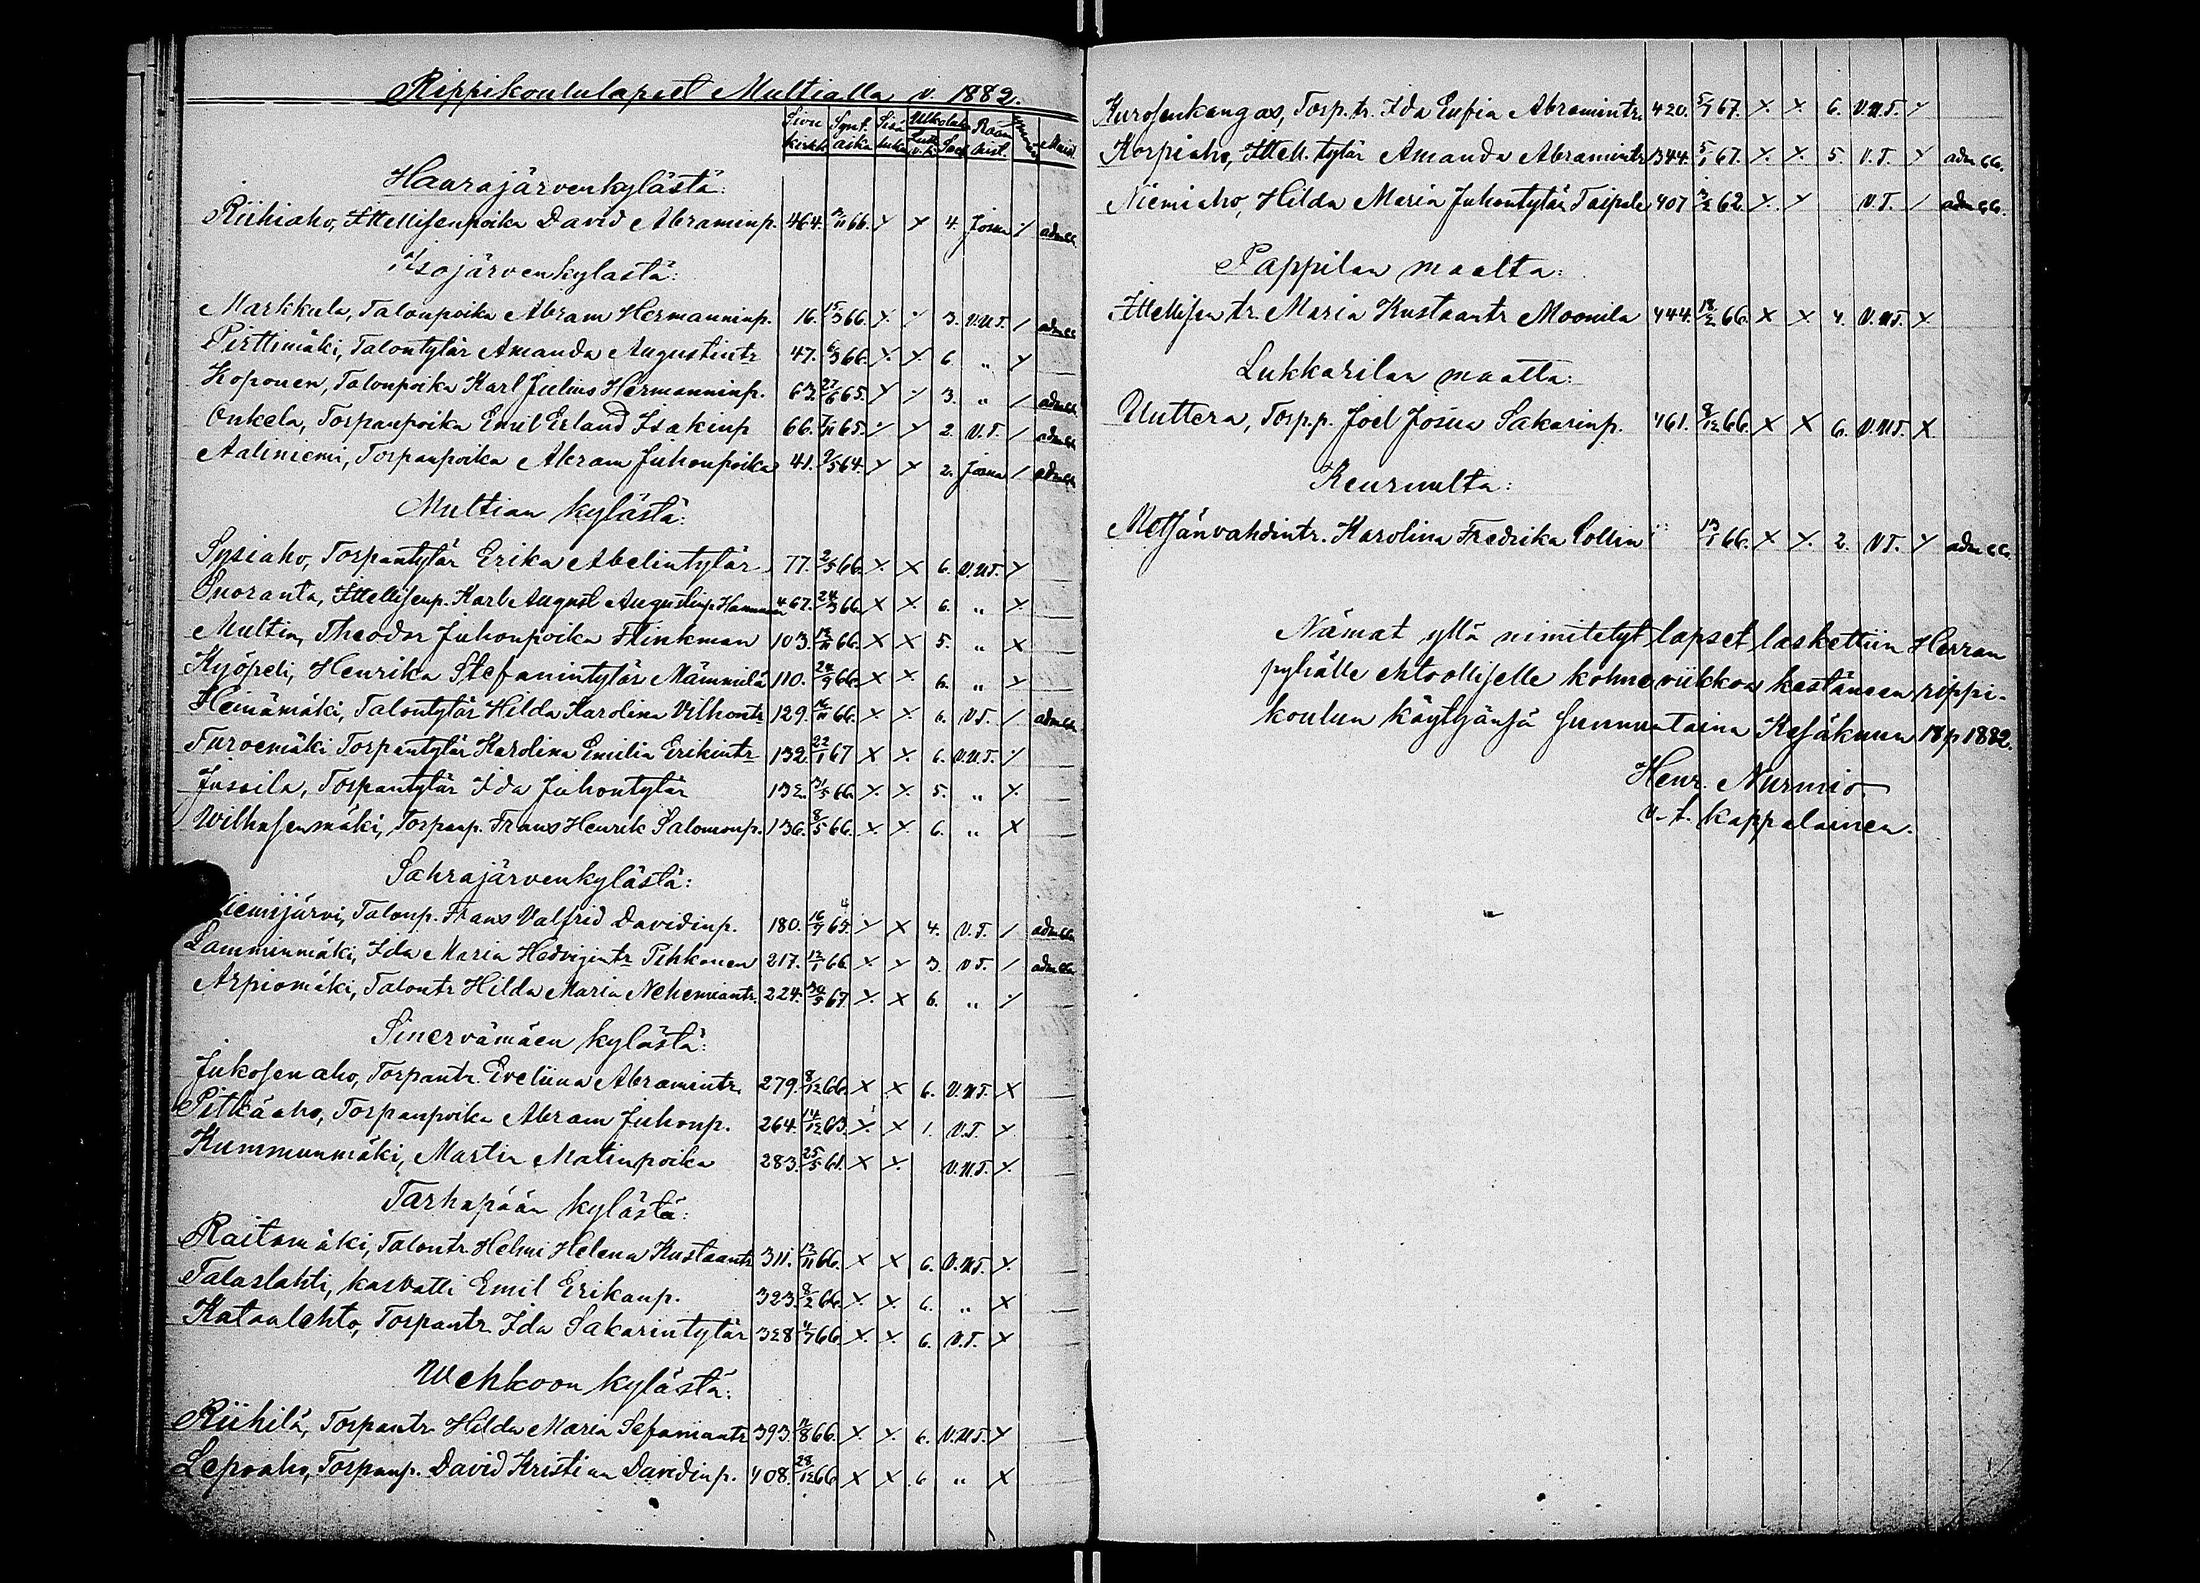 Rippikoululapset Multialla v. 1882.
Sivu kirk. Synt. aika Sisä luku Ulkoluku Raam. hist.
Haarajärvenkylästä:
Riihiaho, Ittellisenpoika David Abraminp. 464. 66. x x 4. Josua / adm. cc.
Isojärvenkylästä:
Markkula, Talonpoika Abram Hermanninp. 16. 15/3 66. x x 3. V.U.T. / adm. cc.
Pirttimäki, Talontytär Amanda Augustintr 47. 6/3 66. x x 6 „ x
Koponen, Talonpoika Karl Julius Hermanninp. 63. 27/6 65. x x 3. „ / adm. cc.
Onkela, Torpanpoika Emil Erland Isakinp 66. 7/11 65. x x 2. V.T. / adm. cc.
Aaliniemi, Torpanpoika Abram Juhonpoika 41. 2/5 64. x x 2. Josua / adm. cc.
Multian kylästä:
Sysiaho, Torpantytär Erika Abelintytär 77. 2/5 66. x x 6. V.U.T. x
Puoranta, Ittellisenp. Karl August Augustinp. Hamman 467. 24/3 66. x x 6. „ x
Multia, Theodor Juhonpoika Flinkman 103. 13/11 66. x x 5. „ x
Kyöpeli, Henrika Stefanintytär Mämmilä 110. 24/9 66. x x 6. „ x
Heinämäki, Talontytär Hilda Karolina Vilhontr 129. 66. x x 6. V.T. / adm. cc.
Turvemäki Torpantytär Karolina Emilia Erikintr 132. 22/1 67 x x 6. V.U.T. x
Jussila, Torpantytär Ida Juhontytär 132. 31/5 66. x x 5. „ x
Wilhusenmäki, Torpanp. Frans Henrik Salomonp. 136. 8/5 66. x x 6. „ x
Sahrajärvenkylästä:
Niemijärvi, Talonp. Frans Valfrid Davidinp. 180. 16/9 65. x x 4. V.T. / adm. cc.
Lamminmäki, Ida Maria Hedvigintr Pihkonen 217. 13/1 66. x x 3. V.T. / adm. cc.
Arpiomäki, Talontr Hilda Maria Nehemiantr. 224. 30/5 67. x x 6. „ x
Sinervämäen kylästä:
Jukosenaho, Torpantr. Eveliina Abramintr. 279. 8/12 66. x x 6. V.U.T. x
Pitkäaho, Torpanpoika Abram Juhonp. 264. 14/12 63. x x 1. V.T. x
Kummunmäki, Martin Matinpoika 283. 25/5 61. x x V.U.T. x
Tarhapään kylästä:
Raitamäki, Talontr Helmi Helena Kustaantr 311. 13/11 66. x x 6. V.U.T. x
Talaslahti, kasvatti Emil Erikanp. 323. 8/2 66. x x 6. „ x
Kataalehto, Torpantr. Ida Sakarintytär 328 4/7 66. x x 6. V.T. x
Wehkoon kylästä:
Riihilä, Torpantr. Hilda Maria Sefaniantr 393. 11/8 66. x x 6. V.U.T. x
Lepoaho, Torpanp. David Kristian Davidinp. 408. 28/12 66 x x 6 „ x
Kurosenkangas, Torp. tr. Ida Eufia Abramintr. 420. 5/7 67. x x 6. V.U.T. x
Korpiaho, Ittell. tytär Amanda Abramintr 344. 5/1 67. x x 5. V.T. x adm. cc.
Niemiaho, Hilda Maria Juhontytär Taipale 407 3/2 62. x x V.T. / adm. cc.
Pappilan maalta:
Ittellisen tr. Maria Kustaantr Moonila 444. 18/2 66. x x 4. V.U.T. x
Lukkarilan maalta:
Uuttera, Torp.p. Joel Josua Sakarinp. 461. 9/12 66. x x 6. V.U.T. x
Keuruulta:
Metsänvahdintr. Karolina Fredrika Collin 13/1 66. x x 2. V.T. x adm. cc.
Nämät yllä nimitetyt lapset laskettiin Herran
pyhälle ehtoolliselle kolme viikkoa kestäneen rippi-
koulun käytyänsä sunnuntaina Kesäkuun 18 p 1882.
Henr. Nurmio
v. t. kappalainen.